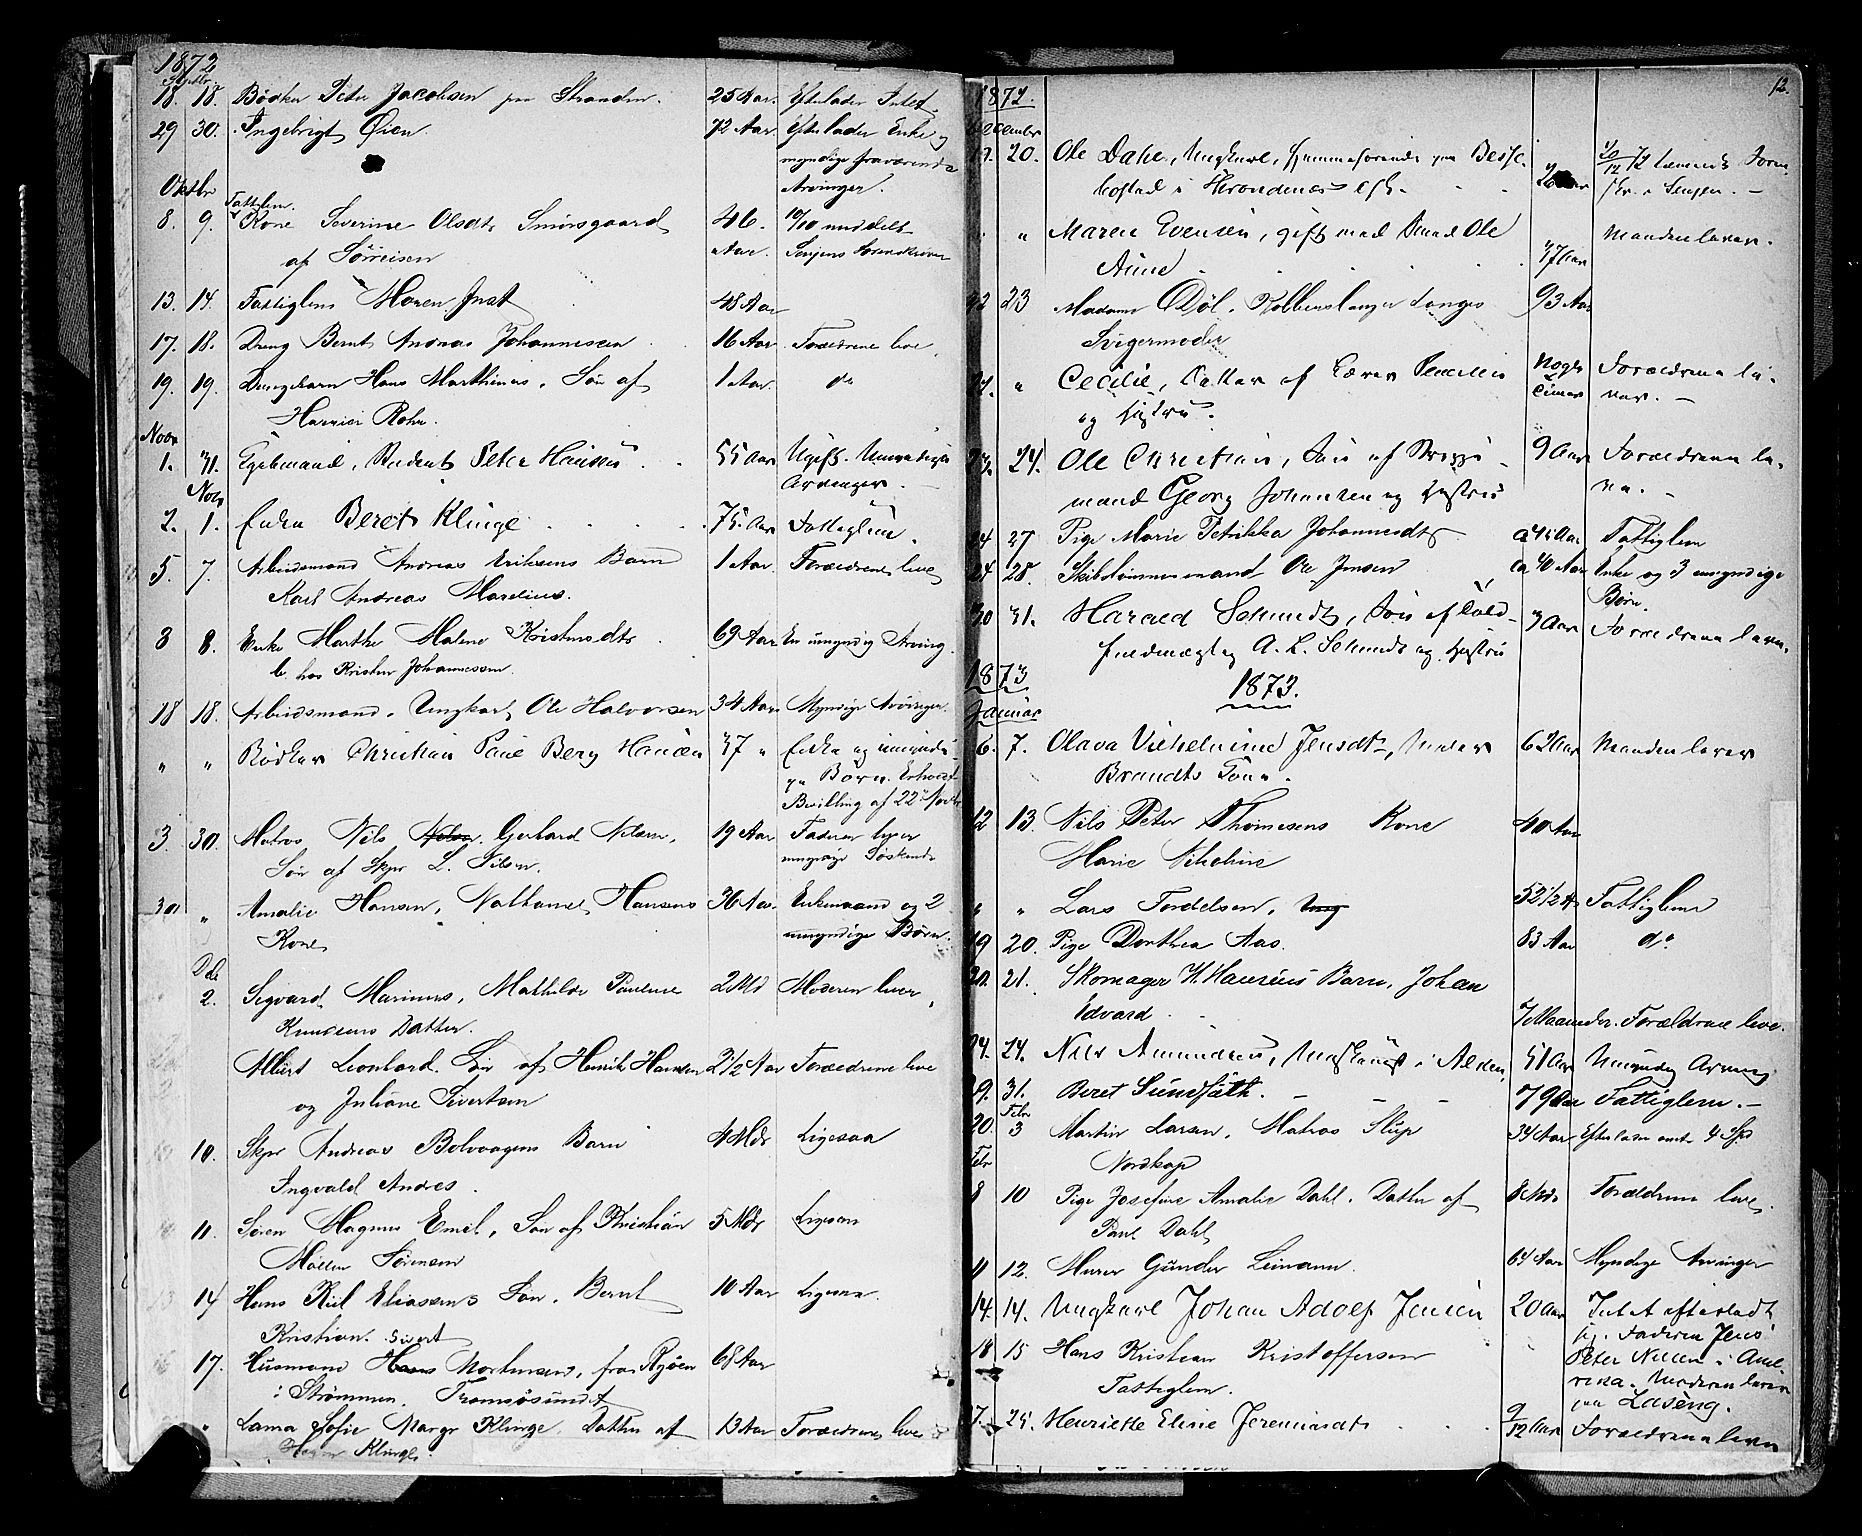 1872
Septbr.
18. 18. Bødker Peder Jacobsen paa Stranden. 25 Aar. Efterlader Intet.
29 30. Ingebrigt Øien. 72 Aar. Efterlader Enke og
myndige fraværende
Arvinger.
Oktbr
Fattiglem.
8. 9. Kone Severine Olsdtr Smørsgaard 46. 10/10 meddelt
af Sørreisen Aar. Senjens Sorenskriver
13. 14. Fattiglem Maren Just 48 Aar
17. 18. Dreng Bernt Andreas Johannessen 16 Aar Forældrene leve.
19. 19. Drengebarn Hans Marthinus, Søn af 1 Aar. do
Rohr.
Novr
1. 31. Student Peter Hansen 55 Aar Ugift. Umyndige
Arvinger.
Novr
2. 1. Enke Beret Klinge 75. Aar Fattiglem.
5. 7. Arbeidsmand Andreas Eriksens Barn 1 Aar. Forældrene leve
Karl Andreas Marelius.
8 8. Enke Marthe Malene Kristensdtr 69 Aar En umyndig Arving.
b. hos Kristen Johannessen.
18 18. Arbeidsmand, Ungkarl, Ole Halvorsen 34 Aar Myndige Arvinger.
" " Bødker Christian Paul Berg Hansen 37 " Enke og umyndi-
ge Børn. Erhvervet
Bevilling af 22 Novbr
3. 30. Matros Nils Gerhard Nilsen, 19 Aar Faderen lever
Søn af Skpr L. Nilsen. umyndige Søskende
30 " Amalie Hansen, Nathanael Hansens 36 Aar. Enkemand og 2
Kone umyndige Børn.
Dec
2. Sigvard Marinus, Mathilde Pauline 2 Md Moderen lever
Knudsens Datter.
Albert Leonhard. Søn af Henrik Hansen 2 1/2 Aar Forældrene leve
og Juliane Sivertsen
10. Skpr Andreas Bolvaagens Barn 4 Mdr Ligesaa
Ingvald Andres.
11. Søren Magnus Emil, Søn af Kristian 5 Mdr Ligesaa
Møller Sørensen
14 Hans Kiil Eliasens Søn, Bernt 10 Aar Ligesaa.
Kristian. Sivert
17. Husmand Hans Mortensen, fra Ryøen 68 Aar
i Strømmen, Tromsøsundet
" Lama Sofie Margr Klinge, Datter af 13 Aar Forældrene leve
Klinge.
12.
1872.
December
19. 20. Ole Dahl, Ungkarl, hjemmehørende paa
i Trondenes 1/12 72 Soren-
skr. i Senjen. —
" Maren Evensen, gift med Ole 37 Aar Manden lever.
Aune
22 23 Madam Døl. Kobberslager Langes 93 Aar
Svigermoder
" Cecilie, Datter af Lærer Nogle Forældrene le-
og Hustru. Timer ver. —
23. 24. Ole Christian, Søn af 9 Aar Forældrene le-
mand Georg Johansen og Hustru ve. —
24 27 Pige Marie Petrikka Johannesdtr ca 45 Aar Fattiglem
24 28. Skibstømmermand Ole Jensen ca 40 Aar Enke og 3 umyndige
Børn.
30 31. Harald Schmidt, Søn af Told- 3 Aar Forældrene lever.
fuldmægtig A. L. Schmidt og Hustru
1873 1873.
Januar
6. 7. Olava Vilhelmine Jensdtr, Maler 62 Aar Manden lever
Brandts Kone.
12 13. Nils Peter Thomesens Kone 40 Aar
Marie Nikoline
" " Lars Tordelsen, Ung 52 1/2 Aar Fattiglem
19 20. Pige Dorthea Aas. 83 Aar do
20. 21. Skomager H. Hansens Barn, Johan
Edvard. 7 Maaneder. Forældrene leve.
24. 24. Nils Amundsen, Ungkarl i 51 Aar Umyndig Arving.
29. 31. Beret Sundsäth. 79 Aar Fattiglem. —
Febr
20. 3 Martin Larsen, Matros Slup 34 Aar Efterlader omtr 4 Spd
Febr Nordkap
8 10 Pige Josefine Amalie Dahl. Datter af 8 Mdr Forældrene leve.
Paul Dahl
11 12. Murer Gunder Leimann. 64 Aar Myndige Arvinger
14. 14. Ungkarl Johan Adolf Jensen 20 Aar Intet efterladt
sig. Faderen Jens
18 15 Hans Kristian Kristoffersen Peter Nilsen i Ame-
Fattiglem. rika. Moderen lever
paa
17. 25. Henriette Elise Jeremiasdtr 9/12 Aar Forældrene lever